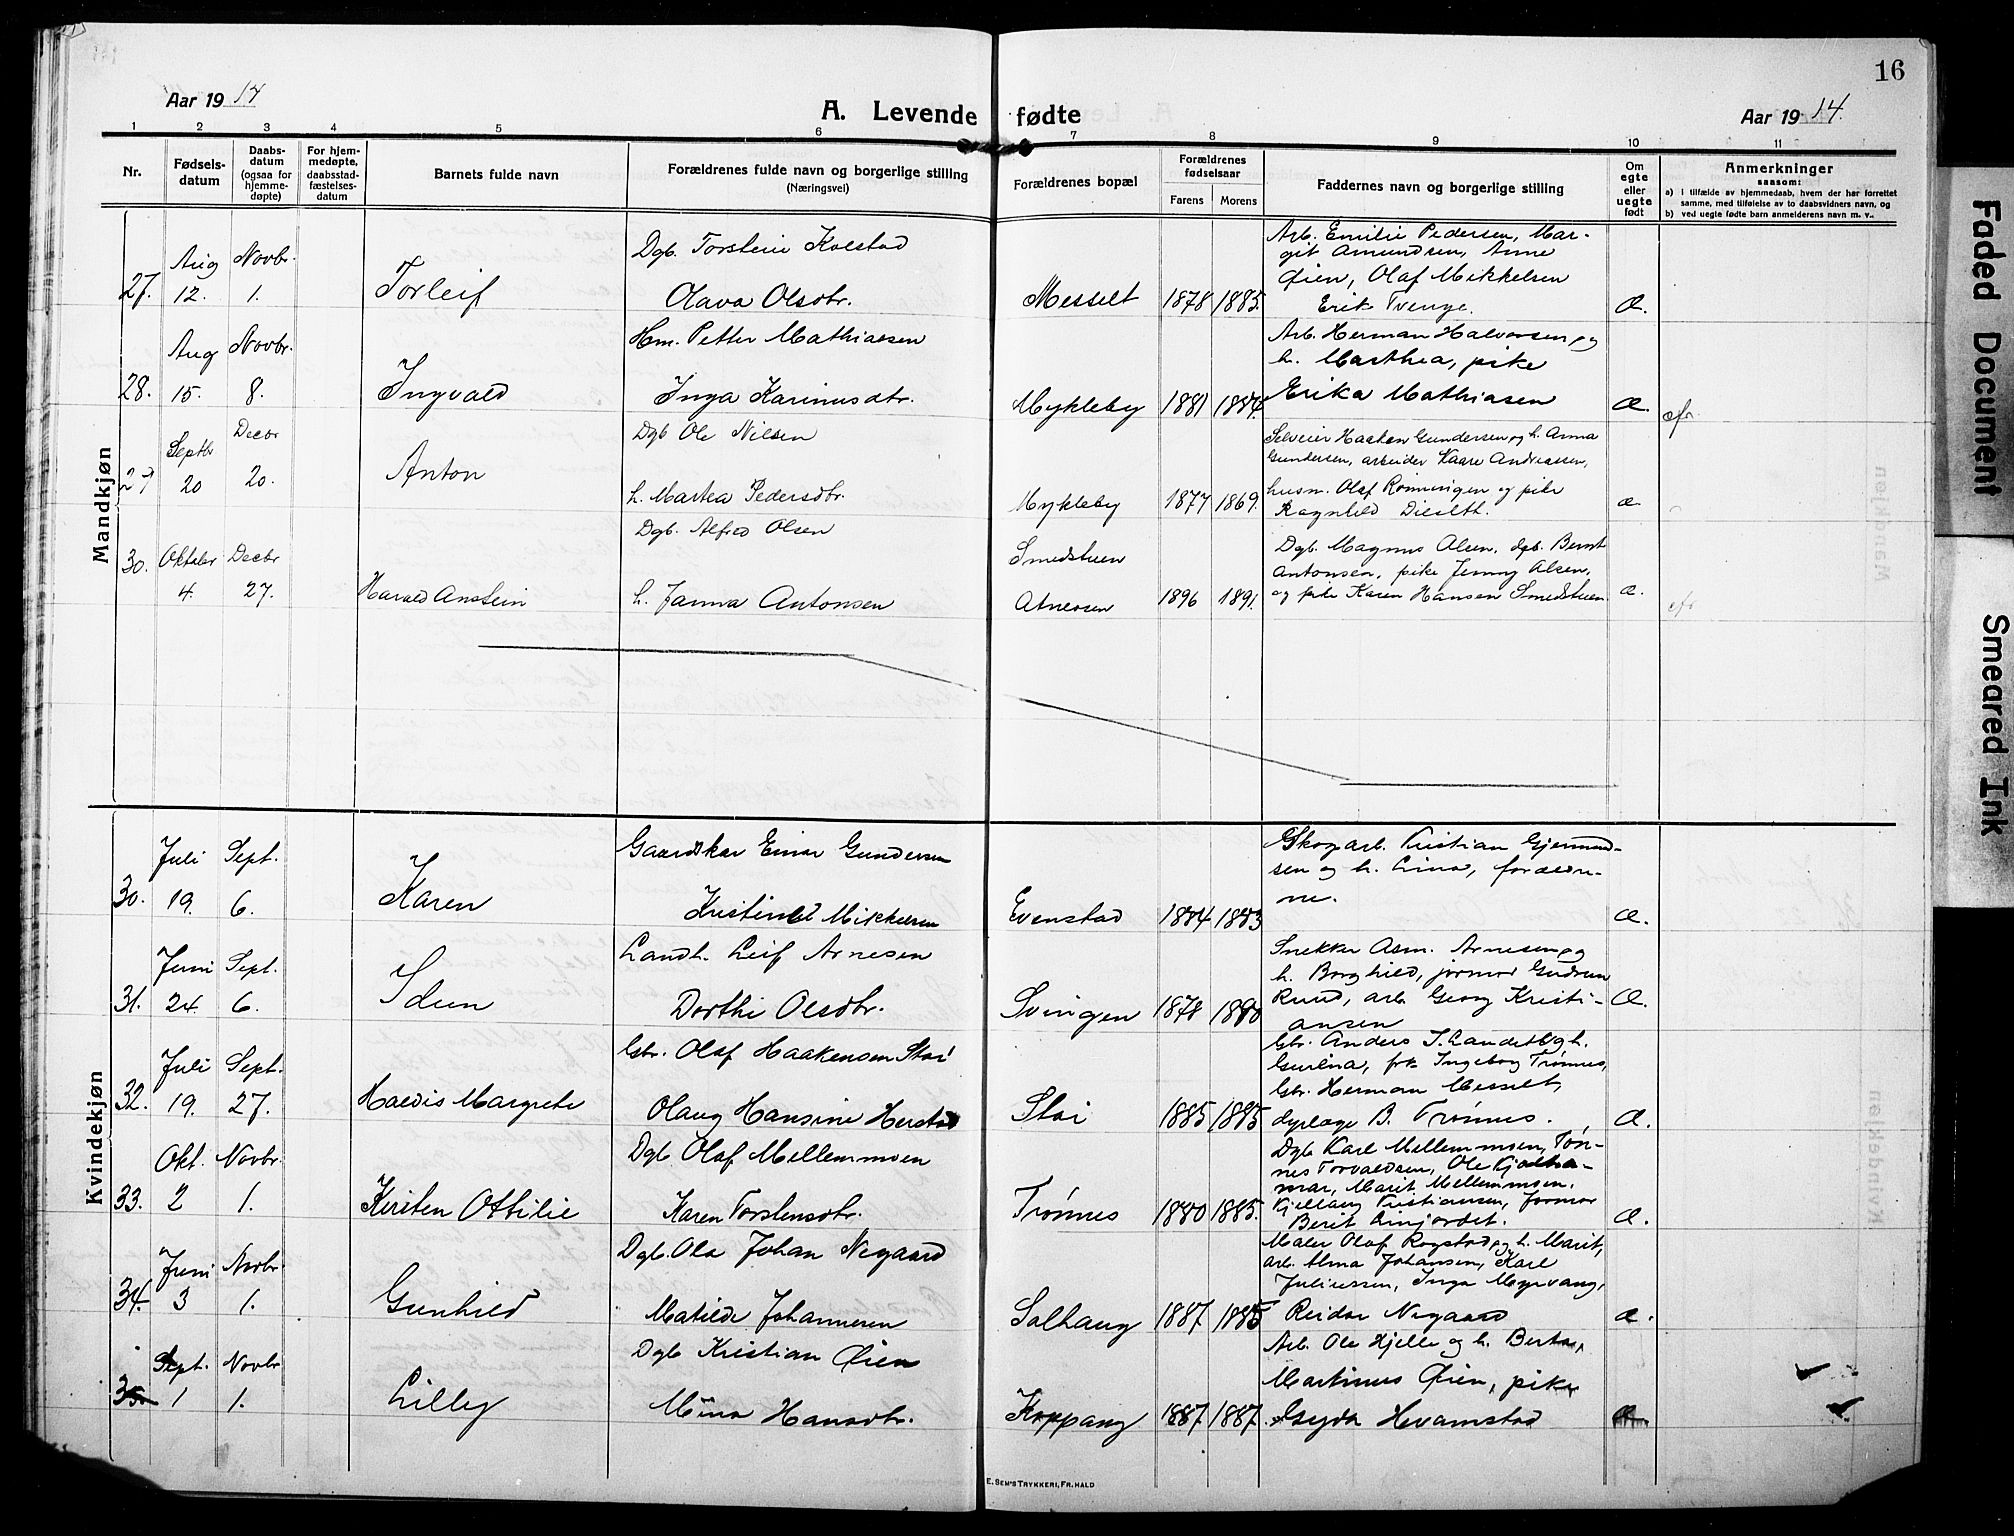 16
Aar 1914
A. Levende fødte
Aar 1914.
1 2 3 4 5 6 7 8 9 10 11
Nr.
Fødsels-
datum
Daabs-
datum
(ogsaa for
hjemme-
døpte)
For hjem-
medøpte,
daabsstad-
fæstelses-
datum
Barnets fulde navn
Forældrenes fulde navn og borgerlige stilling
(Næringsvei)
Forældrenes bopæl
Forældrenes
fødselsaar
Farens Morens
Faddernes navn og borgerlige stilling
Om
egte
eller
uegte
født
Anmerkninger
saasom:
a) i tilfælde av hjemmedaab, hvem der har forrettet
samme, med tilføielse av to daabsvidners navn, og
b) ved uegte fødte barn anmelderens navn m. v..
Mandkjøn
27. Aug 12. Novbr. 1. Torleif
Dgb. Torstein Kolstad
Olava Olsdtr.
Messelt 1878 1885.
Arb. Emilie Pedersen, Mar-
git Amundsen, Anne
Øien, Olaf Mikkelsen
Erik Tvenge.
Æ.
28. Aug 15. Novbr. 8. Ingvald
Hm. Petter Mathiassen
Inga Karinusdtr.
Mykleby 1881 1884.
Arb. Herman Halvorsen og
h. Marthea, pike
Erika Mathiasen
Æ.
29 Septbr 20 Decbr 20. Anton
Dgb Ole Nilsen
h. Martea Pedersdtr.
Mykleby 1877 1869.
Selveier Haaken Gundersen og h. Anna
Gundersen, arbeider Kaare Andreassen,
husm. Olaf Rønningen og pike
Ragnhild Dieseth.
æ
30. Oktober 4. Decbr 27. Harald Anstein
Dgb. Alfred Olsen
h. Janna Antonsen
Smedstuen
Atneosen 1896 1891.
Dgb. Magnus Olsen, dgb. Bernt
Antonsen, pike Jenny Olsen,
og pike Karen Hansen Smedstuen
æ.
Kvindekjøn
30. Juli 19. Sept. 6. Karen
Gaardskar Einar Gundersen
Kristine Mikkelsen
Evenstad 1884 1883
Skogarb. Kristian Gjermund-
sen og h. Lina, forældre-
ne.
Æ.
31. Juni 24. Sept. 6. Idun
Landh. Leif Arnesen
Dorthi Olsdtr.
Svingen 1878 1880
Snekker Asm. Arnesen og
h. Borghild, jormor Gudrun
Ruud, arb. Georg Kristi-
ansen
Æ.
32. Juli 19. Sept. 27. Haldis Margrete
Gbr. Olaf Haakensen Stai
Olaug Hansine Herstad
Stai 1885 1885
Gbr. Anders J. Landet og h.
Gurina, frk Ingeborg Trønnes,
Gbr. Herman Messelt,
dyrlæge B. Trønnes.
Æ.
33. Okt. 2 Novbr. 1. Kirsten Ottilie
Dgb. Olaf Mellemmoen
Karen Torstensdtr.
Trønnes 1880 1885.
Dgb Karl Mellemmoen, Tøn-
nes Torvaldsen, Ole
Marit Mellemmoen,
Kjellaug Kristiansen, Jormor
Berit Linjordet.
Æ.
34. Juni 3 Novbr 1. Gunhild
Dgb. Ola Johan Negaard
Matilde Johannesen
Solhaug 1887 1885
Maler Olaf Rogstad og h. Marit,
arb. Alma Johansen, Karl
Juliussen, Inga Myrvang,
Reidar Negaard
Æ.
35. Sept. 1 Novbr 1. Lilly
Dgb Kristian Øien
Mina Hansdtr.
Koppang 1887 1887.
Arb. Ole Hjelle og h. Berta,
Martinus Øien, pike
Hvamstad
Æ
E. SEM'S TRYKKERI, FR. HALD
Faded Document
Smeared Ink